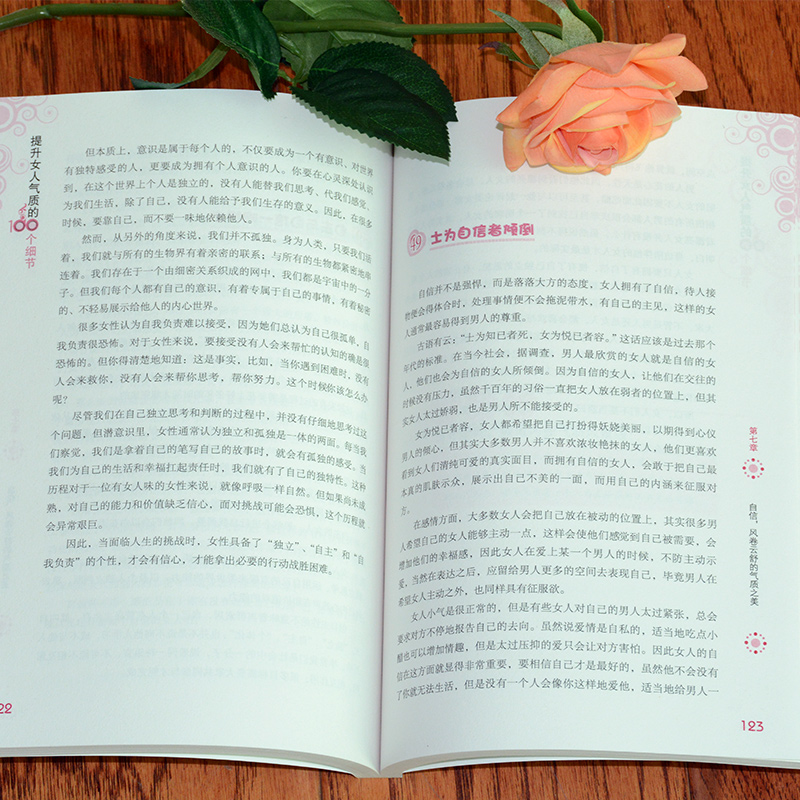 提升女人气质的
100个细节
但本质上，意识是属于每个人的，不仅要成为一个有意识、对世界
有独特感受的人，更要成为拥有个人意识的人。你要在心灵深处认识
到，在这个世界上个人是独立的，没有人能替我们思考、代我们感觉、
为我们生活，除了自己，没有人能给予我们生存的意义。因此，在很多
时候，要靠自己，而不要一味地依赖他人。
然而，从另外的角度来说，我们并不孤独。身为人类，只要我们活
着，我们就与所有的生物界有着亲密的联系；与所有的生物都紧密地串
连着。我们存在于一个由细密关系织成的网中，我们都是宇宙中的一分
子。但我们每个人都有自己的意识，有着专属于自己的事情，有着秘密
的、不轻易展示给他人的内心世界。
很多女性认为自我负责难以接受，因为她们总认为自己很孤单，自
我负责很恐怖。对于女性来说，要接受没有人会来帮忙的认知的确是很
恐怖的。但你得清楚地知道：这是事实，比如，当你遇到困难时，没有
人会来救你，没有人会帮你思考，帮你努力。这个时候你该怎么办
呢？
尽管我们在自己独立思考和判断的过程中，并没有仔细地思考过这
个问题，但潜意识里，女性通常认为独立和孤独是一体的两面。每当我
们察觉，我们是拿着自己的笔写自己的故事时，就会有孤独的感受。当
我们为自己的生活和幸福扛起责任时，我们就有了自己的独特性。这种
历程对于一位有女人味的女性来说，就像呼吸一样自然。但如果尚未成
熟，对自己的能力和价值缺乏信心，面对挑战可能会恐惧，这个历程就
会异常艰巨。
因此，当面临人生的挑战时，女性具备了“独立”、“自主”和“自
我负责”的个性，才会有信心，才能拿出必要的行动战胜困难。
22
49 士为自信者倾倒
自信并不是强悍，而是落落大方的态度，女人拥有了自信，待人接
物便会得体合时，处理事情便不会拖泥带水，有自己的主见，这样的女
人通常最容易得到男人的尊重。
古语有云：“士为知已者死，女为悦已者容。”这话应该是过去那个
年代的标准。在当今社会，据调查，男人最欣赏的女人就是自信的女
人，他们也会为自信的女人所倾倒。因为自信的女人，让他们在交往的
时候没有压力，虽然千百年的习俗一直把女人放在弱者的位置上，但其
实女人太过娇弱，也是男人所不能接受的。
女为悦已者容，女人都希望把自己打扮得妖娆美丽，以期得到心仪
男人的倾心，但其实大多数男人并不喜欢浓妆艳抹的女人，他们更喜欢
看到女人们清纯可爱的真实面目，而拥有自信的女人，会敢于把自己最
本真的肌肤示众，展示出自己不美的一面，而用自己的内涵来征服对
方。
在感情方面，大多数女人会把自己放在被动的位置上，其实很多男
人希望自己的女人能够主动一点，这样会使他们感觉到自己被需要，会
增加他们的幸福感，因此女人在爱上某一个男人的时候，不防主动示
爱，当然在表达之后，应留给男人更多的空间去表现自己，毕竟男人在
希望女人主动之外，也同样具有征服欲。
女人小气是很正常的，但是有些女人对自己的男人太过紧张，总会
要求对方不停地报告自己的去向。虽然说爱情是自私的，适当地吃点小
醋也可以增加情趣，但是太过压抑的爱只会让对方害怕。因此女人的自
信在这方面就显得非常重要，要相信自己才是最好的，虽然他不会没有
了你就无法生活，但是没有一个人会像你这样地爱他，适当地给男人一
第七章
自信，风卷云舒的气质之美
123